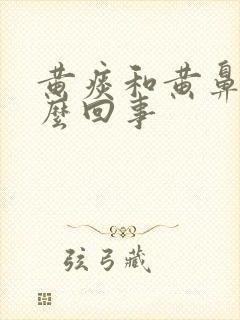 黄痰和黄鼻
么回事
弦弓藏